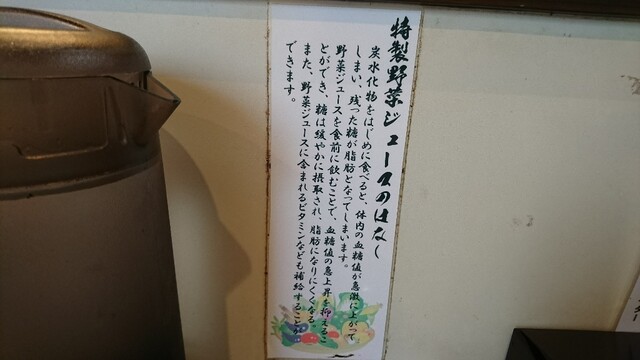 特製野菜ジュースのはなし
炭水化物をはじめに食べると、体内の血糖値が急激に上がって
しまい、残った糖が脂肪となってしまいます。
野菜ジュースを食前に飲むことで、血糖値の急上昇を抑えるこ
とができ、糖は緩やかに摂取され、脂肪になりにくくなる。
また、野菜ジュースに含まれるビタミンなども補給すること
できます。